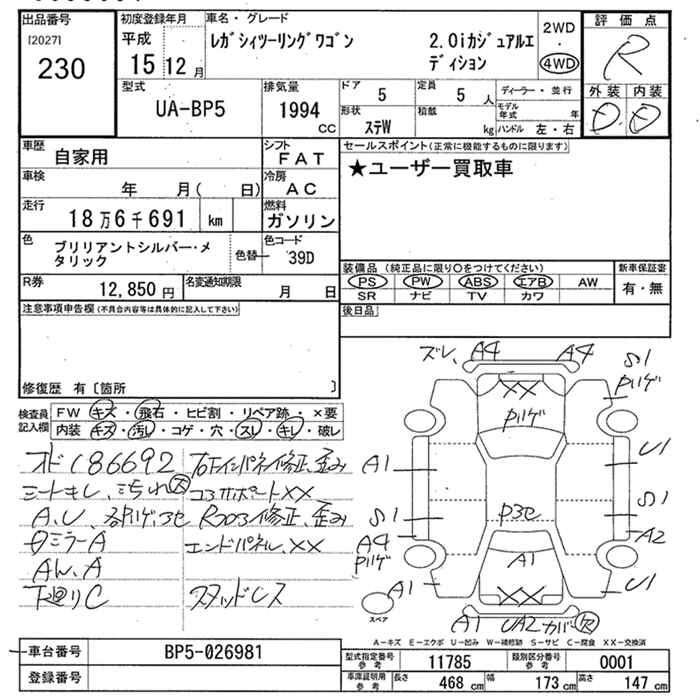 出品番号
[2027]
230
初度登録年月
平成
15 12 月
車名・グレード
レガシィツーリングワゴン 2.0iカジュアルエ
ディション
2WD
・
4WD
評価点
R
型式
UA-BP5
排気量
1994
CC
ドア
5
定員
5 人
ディーラー・並行
モデル
年式 年
形状
ステW
積載
kg
ハンドル 左・右
外装 内装
D D
車歴
自家用
シフト
FAT
車検
年 月( 日)
冷房
AC
走行
18万6千691 km
燃料
ガソリン
色
ブリリアントシルバー・メ
タリック
色替
色コード
39D
R券
12,850 円
名変通知期限
月 日
セールスポイント(正常に機能するものに限ります)
★ユーザー買取車
装備品 (純正品に限り〇をつけてください)
PS PW ABS エアB AW
SR ナビ TV カワ
新車保証書
有・無
後日品
注意事項申告欄(不具合内容等は具体的に記入して下さい)
修復歴 有〔箇所 〕
検査員
記入欄
FW キズ・飛石・ヒビ割・リペア跡・×要
内装 キズ・汚レ・コゲ・穴・スレ・キレ・破レ
オドC86692
シートキレ、汚れ大
A、U、
ミラーA
A
下廻りC
右インパネ修正、歪み
コアサポートXX
修正、歪み
エンドパネル、XX
スタッドレス
ズレ、A4 A4
S1
Pハゲ
XX
Pハゲ
A1
U1
S1
S1
P3セ
A4
Pハゲ
A2
A1
A1
XX
U1
スペア
A1 UA2 カバー欠
A−キズ E−エクボ U−凹み W−補修跡 S−サビ C−腐食 XX−交換済
車台番号
BP5-026981
登録番号
型式指定番号
参考
11785
類別区分番号
参考
0001
車庫証明用
参考
長さ
468 cm
幅
173 cm
高さ
147 cm